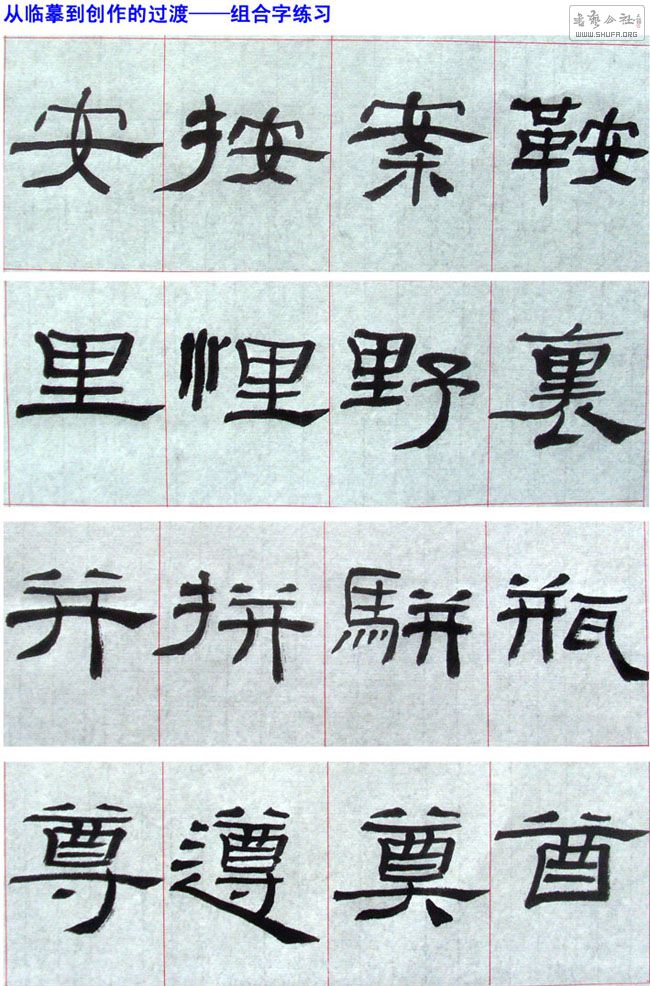 从临摹到创作的过渡——组合字练习
WWW.SHUFA.ORG
安按案鞍
里悝野裏
并拼駢瓶
尊遵奠酋